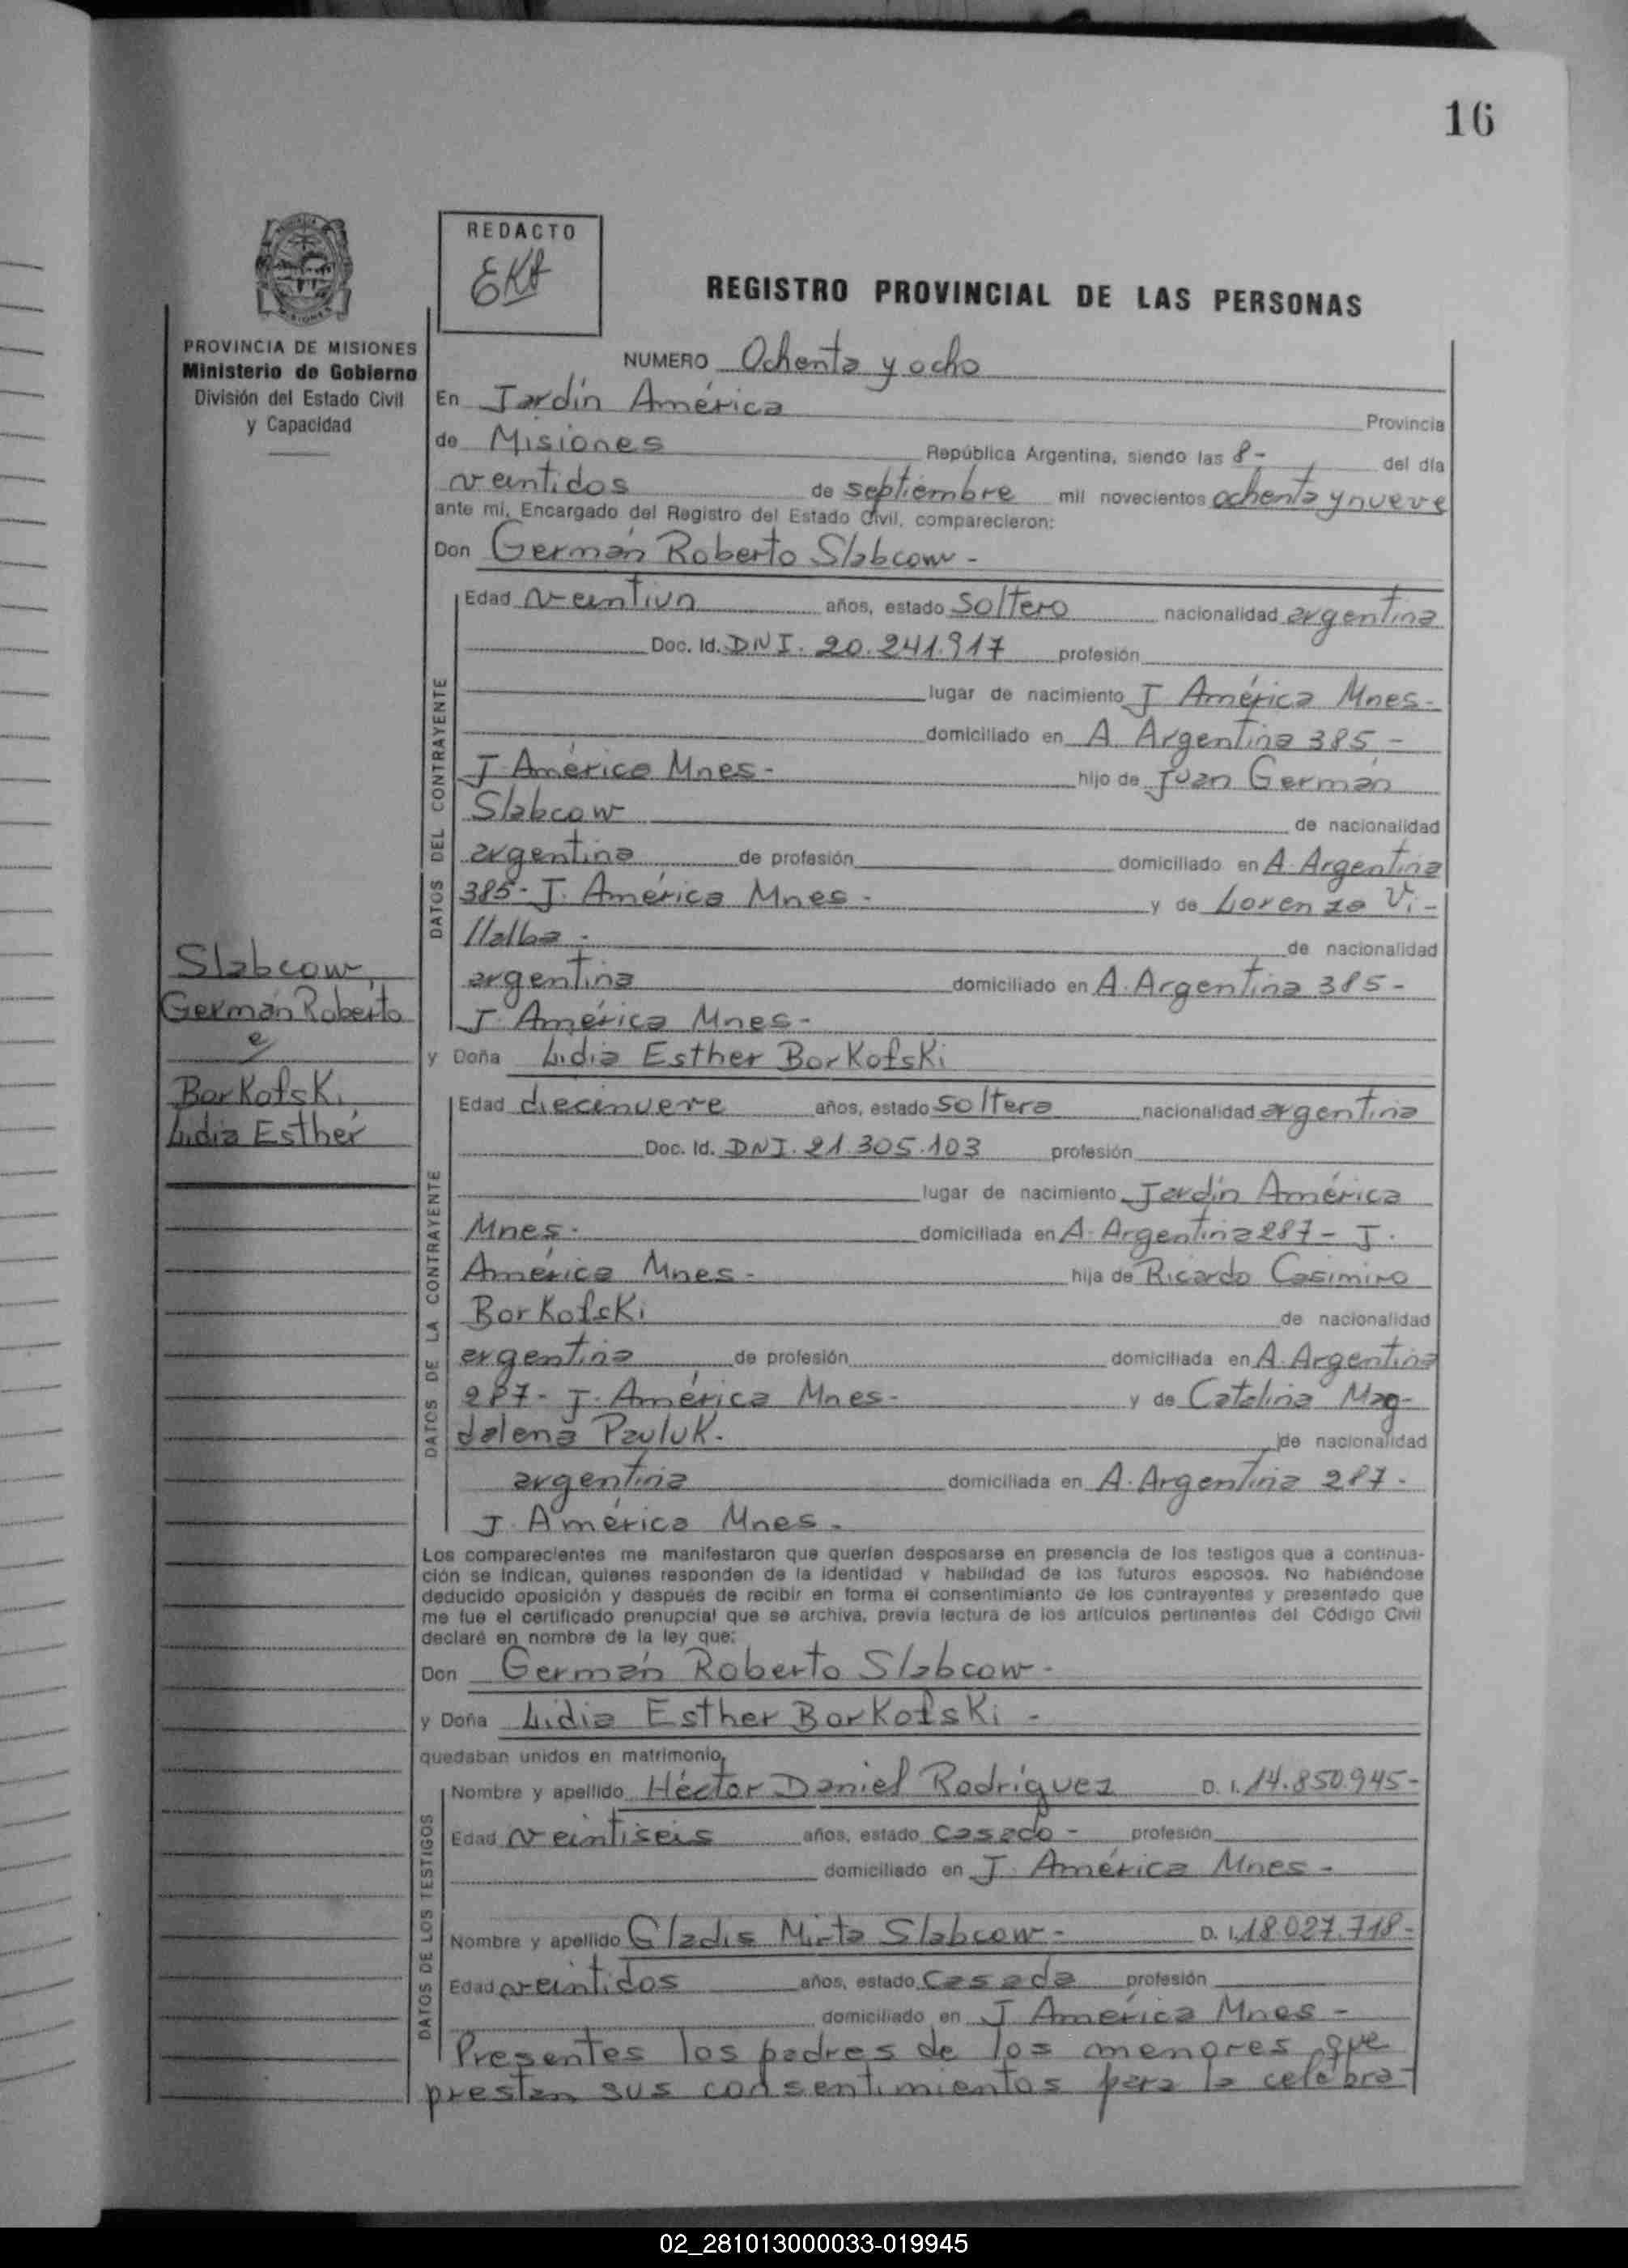 16
REDACTO
EKA
REGISTRO PROVINCIAL DE LAS PERSONAS
PROVINCIA DE MISIONES
Ministerio de Gobierno
División del Estado Civil
y Capacidad
NUMERO Ochenta y ocho
En Jardín América Provincia
de Misiones República Argentina, siendo las 8- del día
veintidos de septiembre mil novecientos ochenta y nueve
ante mí, Encargado del Registro del Estado Civil, comparecieron:
Don Germán Roberto Slabcow -
DATOS DEL CONTRAYENTE
Edad veintiun años, estado soltero nacionalidad argentina
Doc. Id. DNI. 20.241.917 profesión
lugar de nacimiento J América Mnes-
domiciliado en A. Argentina 385 -
J. América Mnes- hijo de Juan Germán
Slabcow de nacionalidad
argentina de profesión domiciliado en A. Argentina
385- J. América Mnes - y de Lorenza Vi-
llalba - de nacionalidad
argentina domiciliado en A. Argentina 385-
J. América Mnes-
Slabcow,
Germán Roberto
e
Borkofski,
Lidia Esther
y Doña Lidia Esther Borkofski
DATOS DE LA CONTRAYENTE
Edad diecinueve años, estado soltera nacionalidad argentina
Doc. Id. DNI. 21.305.103 profesión
lugar de nacimiento Jardín América
Mnes. domiciliada en A. Argentina 287 - J.
América Mnes - hija de Ricardo Casimiro
Borkofski de nacionalidad
argentina de profesión domiciliada en A. Argentina
287- J. América Mnes- y de Catalina Mag-
dalena Pauluk. de nacionalidad
argentina domiciliada en A. Argentina 287-
J. América Mnes -
Los comparecientes me manifestaron que querían desposarse en presencia de los testigos que a continua-
ción se indican, quienes responden de la identidad y habilidad de los futuros esposos. No habiéndose
deducido oposición y después de recibir en forma el consentimiento de los contrayentes y presentado que
me fue el certificado prenupcial que se archiva, previa lectura de los artículos pertinentes del Código Civil
declaré en nombre de la ley que:
Don Germán Roberto Slabcow -
y Doña Lidia Esther Borkofski -
quedaban unidos en matrimonio,
DATOS DE LOS TESTIGOS
Nombre y apellido Héctor Daniel Rodríguez D. I. 14.850.945-
Edad veintiseis años, estado casado - profesión
domiciliado en J. América Mnes -
Nombre y apellido Gladis Mirta Slabcow - D. I. 18.027.718-
Edad veintidos años, estado casada profesión
domiciliado en J América Mnes -
Presentes los padres de los menores que
prestan sus consentimientos para la celebra-
02_281013000033-019945